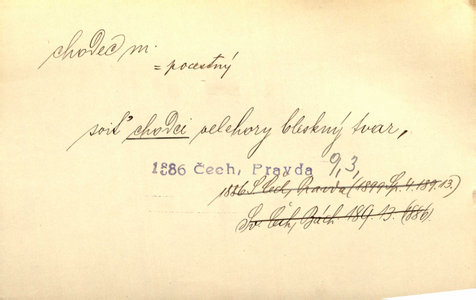 chodec m.
= pocestný
svit' chodci velehory bleskný tvar,
1886 Čech, Pravda 9,3,
1886 S. Čech, Pravda (1899 Sp. 4. 189. 13.)
Sv. Čech, 189. 13. (886)